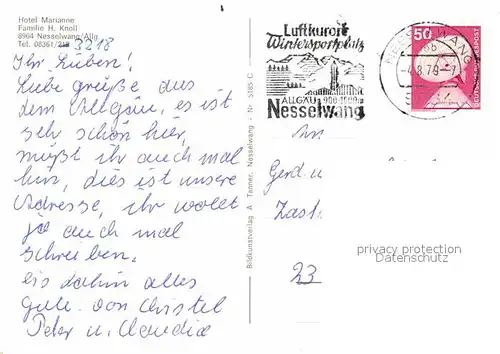 Hotel Marianne
Familie H. Knoll
8964 Nesselwang/Allg.
Tel. 08361/218 3218
Ihr Lieben!
Liebe Grüße aus
dem Allgäu, es ist
sehr schön hier,
müßt ihr auch mal
hin, dies ist unsere
Adresse, ihr wollt
ja auch mal
schreiben.
Bis dahin alles
Gute. von Christel
Peter u. Claudia
Bildkunstverlag A. Tanner, Nesselwang - Nr. 5185 C
Luftkurort
Wintersportplatz
ALLGÄU 900-1600m
Nesselwang
NESSELWANG
-4.8.79-
50
DEUTSCHE BUNDESPOST
An
Gerd u
Zast
23
privacy protection
Datenschutz